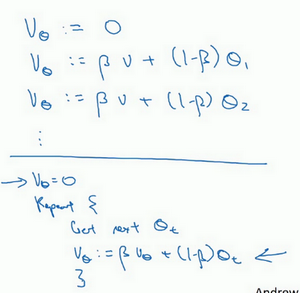 V_θ := 0
V_θ := β v + (1-β) θ_1
V_θ := β v + (1-β) θ_2
⋮
→ V_θ = 0
Repeat {
Get next θ_t
V_θ := β V_θ + (1-β) θ_t ←
}
Andrew